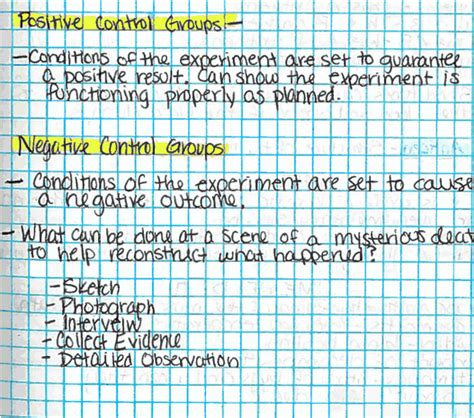 Positive Control Groups:-
-Conditions of the experiment are set to guarantee
a positive result. Can show the experiment is
functioning properly as planned.
Negative Control Groups
- Conditions of the experiment are set to cause
a negative outcome.
-What can be done at a scene of a mysterious deat
to help reconstruct what happened?
-Sketch
-Photograph
-Interveiw
-Collect Evidence
-Detailed Observation